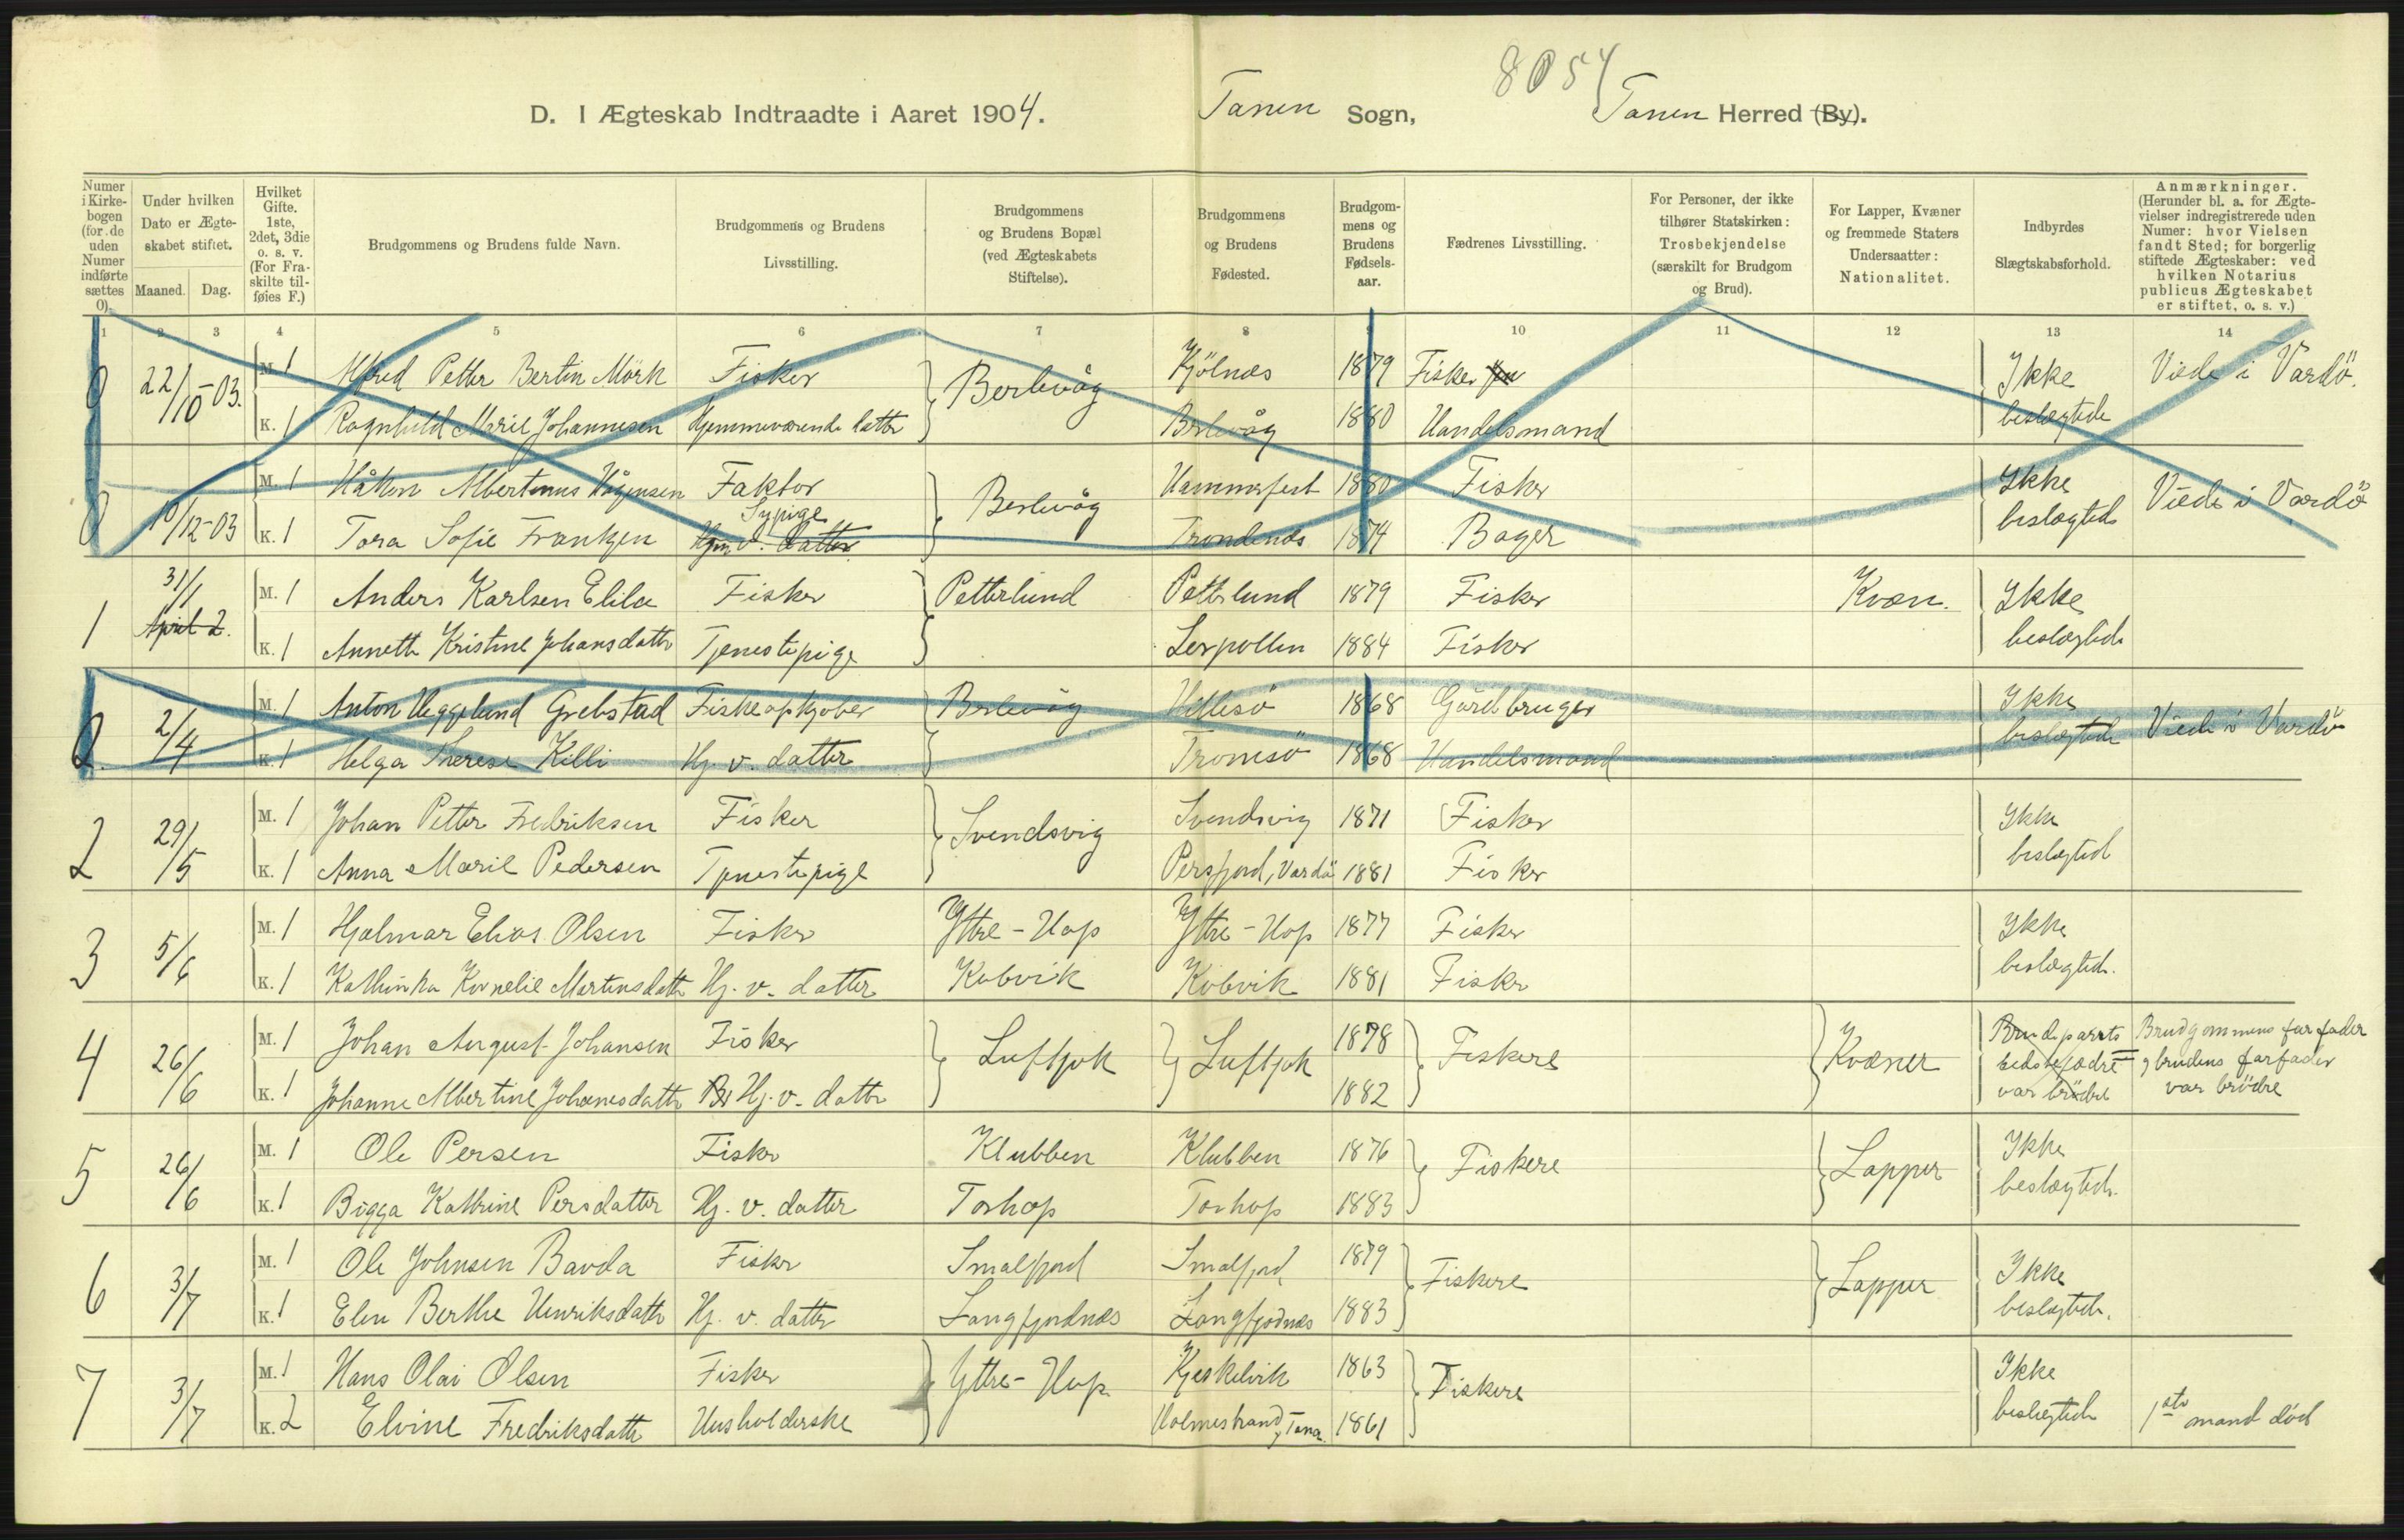 8054
D. I Ægteskab Indtraadte i Aaret 1904. Tanen Sogn, Tanen Herred (By).
Numer i Kirkebogen (for de uden Numer indførte sættes 0).
Under hvilken Dato er Ægteskabet stiftet.
Maaned. Dag.
Hvilket Gifte. 1ste, 2det, 3die o. s. v. (For Fraskilte tilføies F.)
Brudgommens og Brudens fulde Navn.
Brudgommens og Brudens Livsstilling.
Brudgommens og Brudens Bopæl (ved Ægteskabets Stiftelse).
Brudgommens og Brudens Fødested.
Brudgommens og Brudens Fødselsaar.
Fædrenes Livsstilling.
For Personer, der ikke tilhører Statskirken: Trosbekjendelse (særskilt for Brudgom og Brud).
For Lapper, Kvæner og fremmede Staters Undersaatter: Nationalitet.
Indbyrdes Slægtskabsforhold.
Anmærkninger. (Herunder bl. a. for Ægtevielser indregistrerede uden Numer: hvor Vielsen fandt Sted; for borgerlig stiftede Ægteskaber: ved hvilken Notarius publicus Ægteskabet er stiftet, o. s. v.)
1 2 3 4 5 6 7 8 9 10 11 12 13 14
0 22/10-03. M. 1 Alfred Petter Bertin Mörk Fisker Berlevåg Kjölnæs 1879 Fisker Ikke beslægtede Viede i Vardö.
K. 1 Ragnhild Marie Johannesen Hjemmeværende datter Berlevåg 1880 Handelsmand
0 10/12-03 M. 1 Håkon Albertinus Hågensen Faktor Berlevåg Hammerfest 1880 Fisker Ikke beslægtede Viede i Vardö
K. 1 Tora Sofie Frantzen Sypige Hjm. v. datter Trondenæs 1874 Bager
1 31/1 April 2. M. 1 Anders Karlsen Elila Fisker Petterlund Petterlund 1879 Fisker Kvæn. Ikke beslægtede
K. 1 Annette Kristine Johansdatter Tjenestepige Lerpollen 1884 Fisker
2. 2/4 M. 1 Anton Heggelund Grebstad Fiskeopkjøber Berlevåg Hillesö 1868 Gårdbruger Ikke beslægtede Viede i Vardö
K. 1 Helga Therese Killi Hj. v. datter Tromsö 1868 Handelsmand
2 29/5 M. 1 Johan Petter Fredriksen Fisker Svendsvig Svendsvig 1871 Fisker Ikke beslægted
K. 1 Anna Marie Pedersen Tjenestepige Persfjord, Vardö 1881 Fisker
3 5/6 M. 1 Hjalmar Elias Olsen Fisker Yttre-Hop Yttre-Hop 1877 Fisker Ikke beslægted.
K. 1 Kathinka Kornelie Martinsdatter Hj. v. datter Kobvik Kobvik 1881 Fisker
4 26/6 M. 1 Johan August Johansen Fisker Luftjok Luftjok 1878 Fiskere Kvæner Brudeparrets bedstefædre var brödre Brudgommens farfader og brudens farfader var brödre
K. 1 Johanne Albertine Johannesdatter Br Hj. v. datter 1882
5 26/6 M. 1 Ole Persen Fisker Klubben Klubben 1876 Fiskere Lapper Ikke beslægted.
K. 1 Bigga Kathrine Persdatter Hj. v. datter Torhop Torhop 1883
6 3/7 M. 1 Ole Johnsen Bavda Fisker Smalfjord Smalfjord 1879 Fiskere Lapper Ikke beslægted.
K. 1 Elen Berthe Henriksdatter Hj. v. datter Langfjordnæs Langfjordnæs 1883
7 3/7 M. 1 Hans Olai Olsen Fisker Yttre-Hop Kjeskelvik 1863 Fiskere Ikke beslægted
K. 2 Elvine Fredriksdatter Husholderske Holmestrand, Tana. 1861 1ste mand död